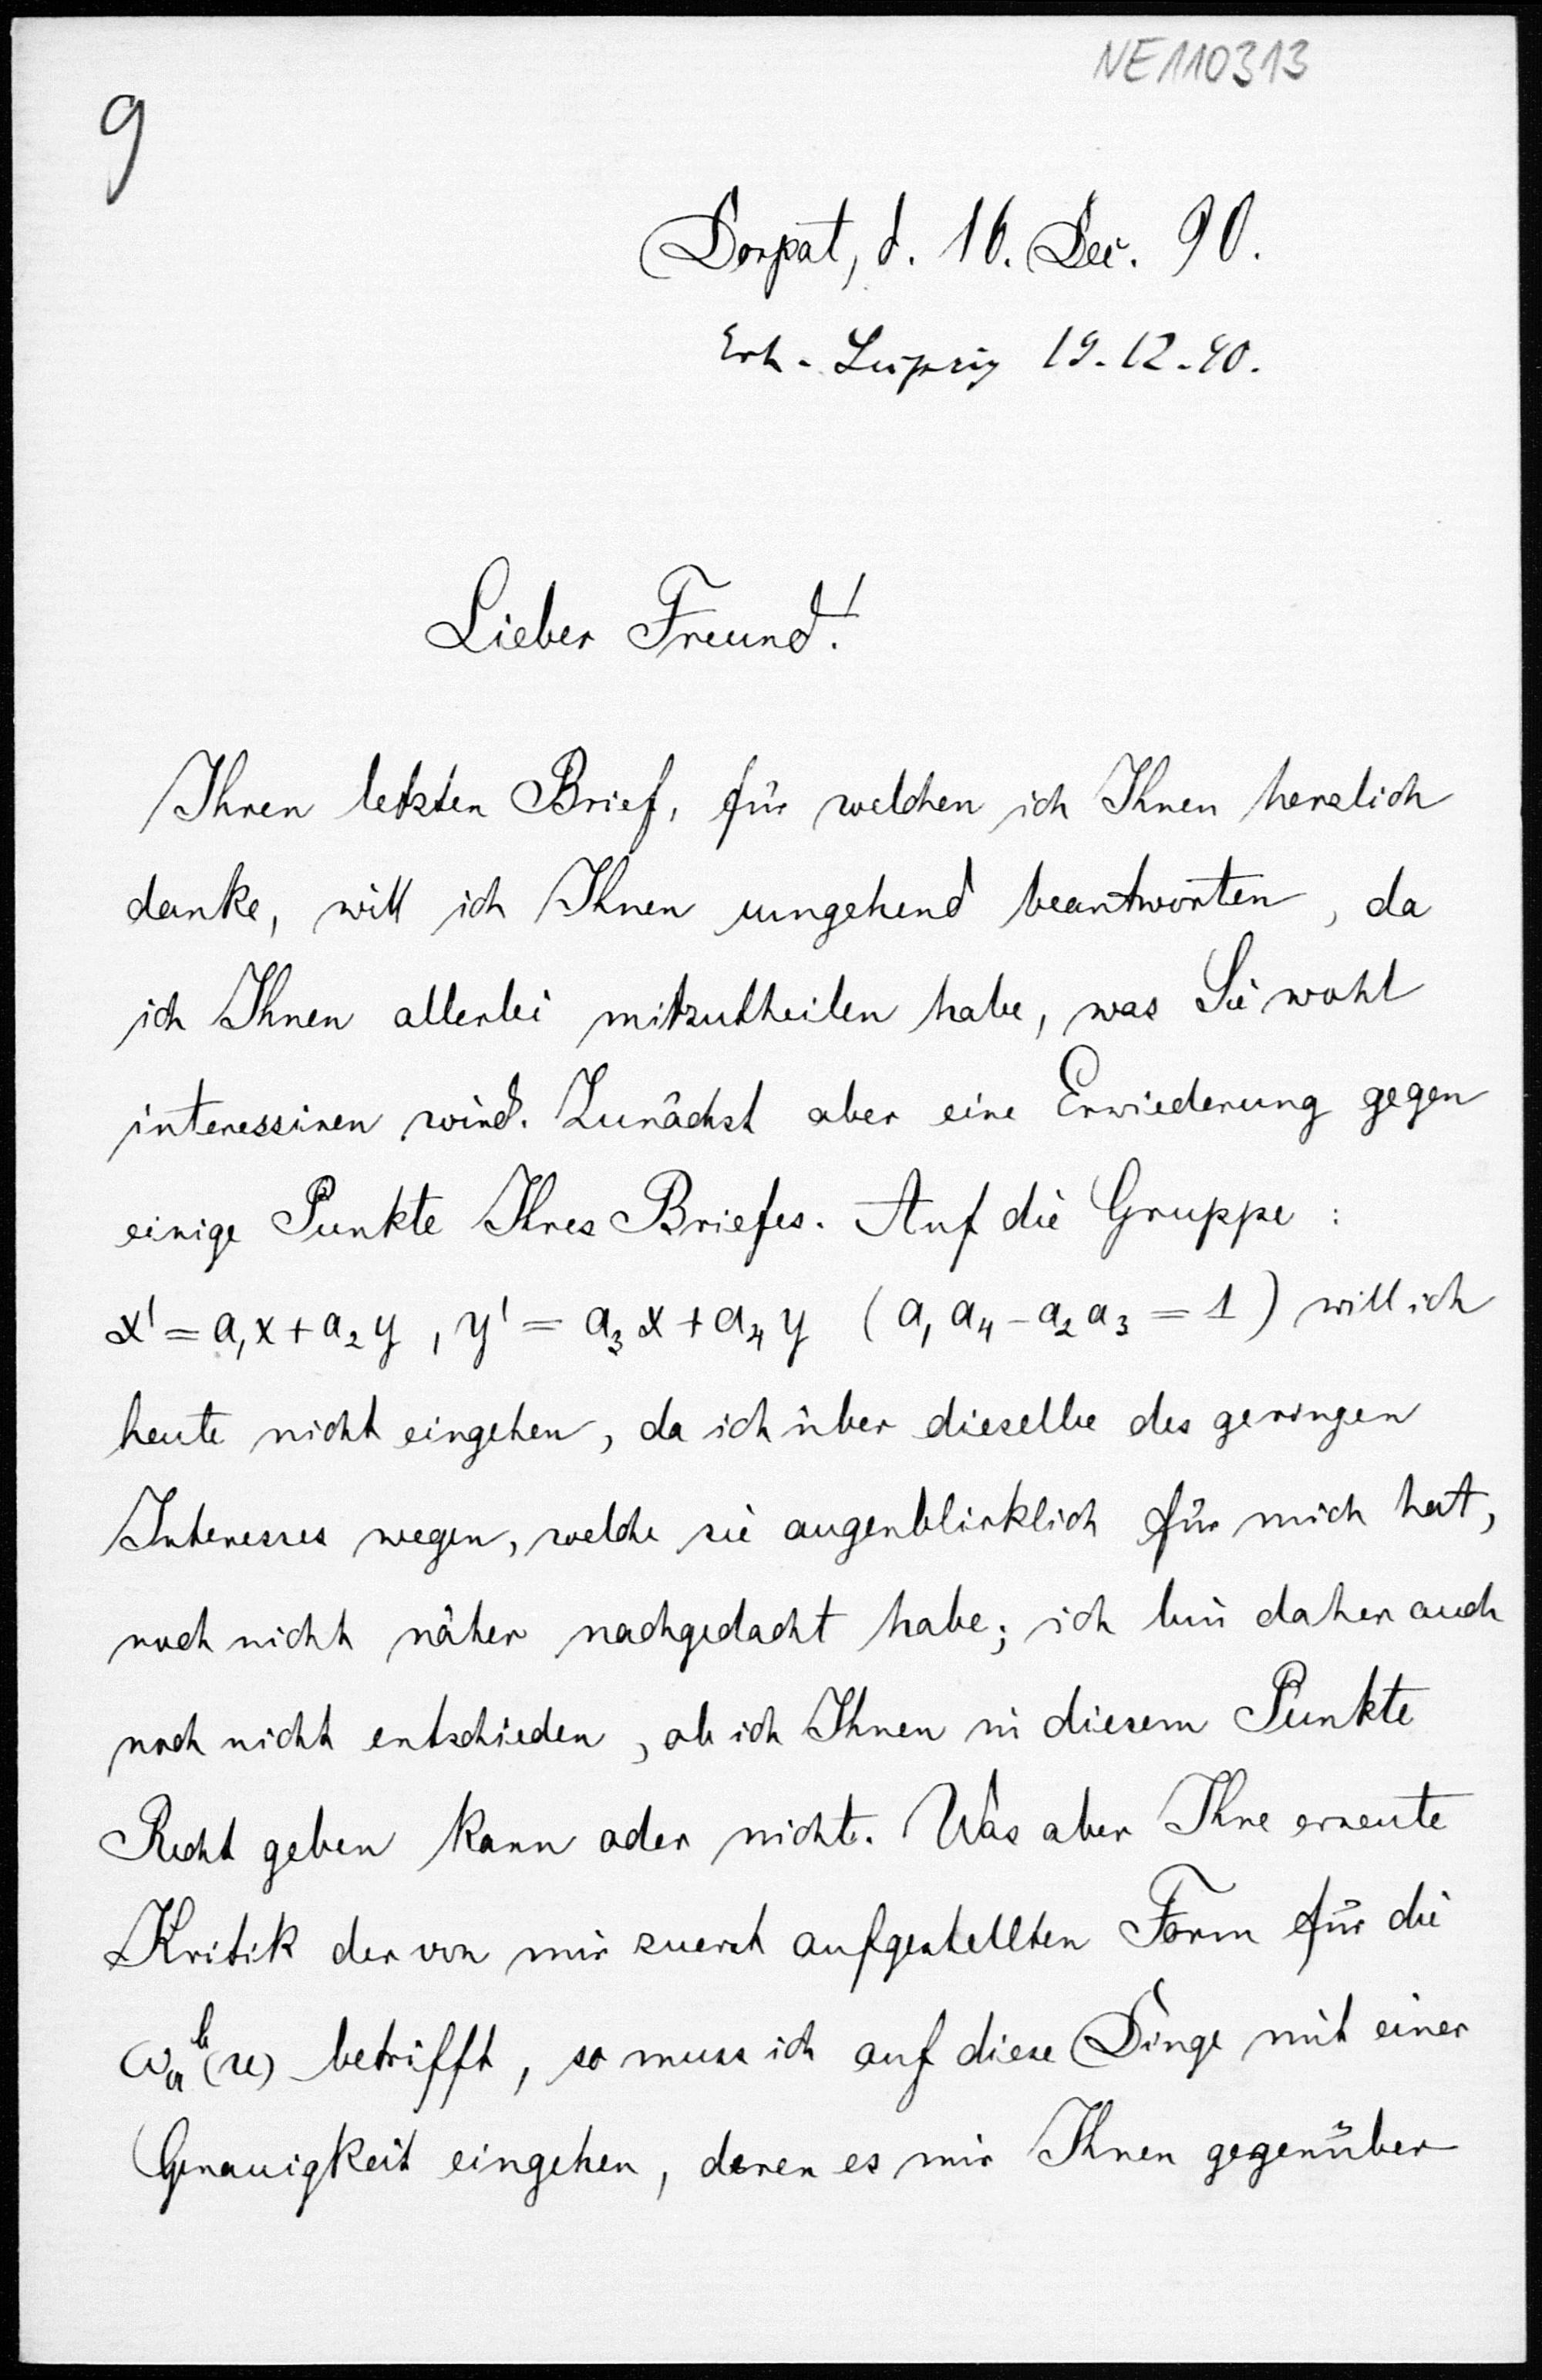 NE110313
9
Dorpat, d. 16. Dec. 90.
Erh. Leipzig 19-12-90.
Lieber Freund!
Ihren letzten Brief, für welchen ich Ihnen herzlich
danke, will ich Ihnen umgehend beantworten, da
ich Ihnen allerlei mitzutheilen habe, was Sie wohl
interessiren wird. Zunächst aber eine Erwiederung gegen
einige Punkte Ihres Briefes. Auf die Gruppe:
x' = a₁x + a₂y, y' = a₃x + a₄y (a₁a₄ - a₂a₃ = 1) will ich
heute nicht eingehen, da ich über dieselbe des geringen
Interesses wegen, welche sie augenblicklich für mich hat,
noch nicht näher nachgedacht habe; ich bin daher auch
noch nicht entschieden, ob ich Ihnen in diesem Punkte
Recht geben kann oder nicht. Was aber Ihre erneute
Kritik der von mir zuerst aufgestellten Form für die
ωₐᵇ(u) betrifft, so muss ich auf diese Dinge mit einer
Genauigkeit eingehen, deren es mir Ihnen gegenüber